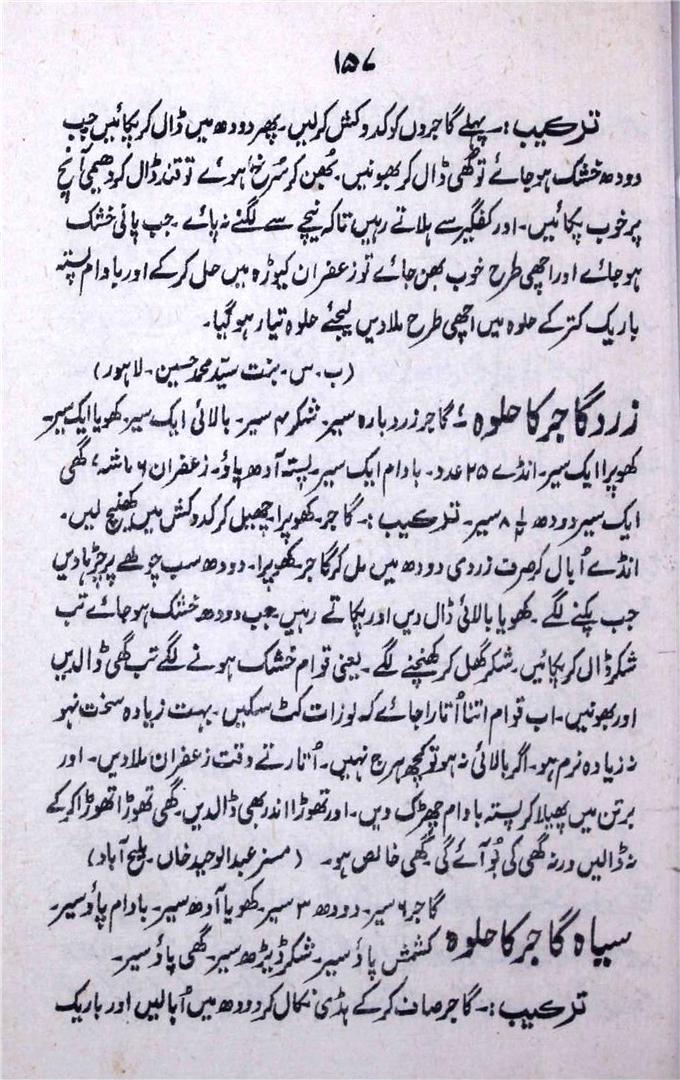 ۱۵۷
ترکیب:۔ پہلے گاجروں کو کدوکش کرلیں۔ پھر دودھ میں ڈال کر پکائیں جب
دودھ خشک ہو جائے تو گھی ڈال کر بھونیں۔ بھن کر سُرخ ہوئے تو قند ڈال کر دھیمی آنچ
پر خوب پکائیں۔ اور کفگیر سے ہلاتے رہیں تاکہ نیچے سے لگنے نہ پائے۔ جب پانی خشک
ہو جائے اور اچھی طرح خوب بھن جائے تو زعفران کیوڑہ میں حل کرکے اور بادام پستہ
باریک کتر کے حلوہ میں اچھی طرح ملادیں لیجئے حلوہ تیار ہو گیا۔
(ب۔س۔ بنت سیّد محمد حسین۔ لاہور)
زرد گاجر کا حلوہ :۔ گاجر زرد بارہ سیر۔ شکر ۴ سیر۔ بالائی ایک سیر۔ کھویا ایک سیر۔
کھوپرا ایک سیر۔ انڈے ۲۵ عدد۔ بادام ایک سیر۔ پستہ آدھ پاؤ۔ زعفران ۶ ماشہ، گھی
ایک سیر دودھ ۸½ سیر۔ ترکیب:۔ گاجر۔ کھوپرا۔ چھیل کر کدوکش میں کھینچ لیں۔
انڈے اُبال کر صرف زردی دودھ میں مل کر گاجر۔ کھوپرا۔ دودھ سب چولھے پر چڑہا دیں
جب پکنے لگے۔ کھویا بالائی ڈال دیں اور پکاتے رہیں۔ جب دودھ خشک ہو جائے تب
شکر ڈال کر پکائیں۔ شکر گھل کر کھنچنے لگے۔ یعنی قوام خشک ہونے لگے تب گھی ڈالدیں
اور بھونیں۔ اب قوام اتنا اُتارا جائے کہ لوزات کٹ سکیں۔ بہت زیادہ سخت نہو
نہ زیادہ نرم ہو۔ اگر بالائی نہ ہو تو کچھ ہرج نہیں۔ اُتارتے وقت زعفران ملادیں۔ اور
برتن میں پھیلا کر پستہ بادام چھڑک دیں۔ اور تھوڑا اندر بھی ڈالدیں۔ گھی تھوڑا تھوڑا کرکے
نہ ڈالیں ورنہ گھی کی بُو آئے گی۔ گھی خالص ہو۔ (مسز عبدالوحید خاں۔ ملیح آباد)
گاجر ۶ سیر۔ دودھ ۳ سیر۔ کھویا آدھ سیر۔ بادام پاؤ سیر۔
سیاہ گاجر کا حلوہ کشمش پاؤ سیر۔ شکر ڈیڑھ سیر۔ گھی پاؤ سیر۔
ترکیب:۔ گاجر صاف کرکے ہڈی نکال کر دودھ میں اُبالیں اور باریک